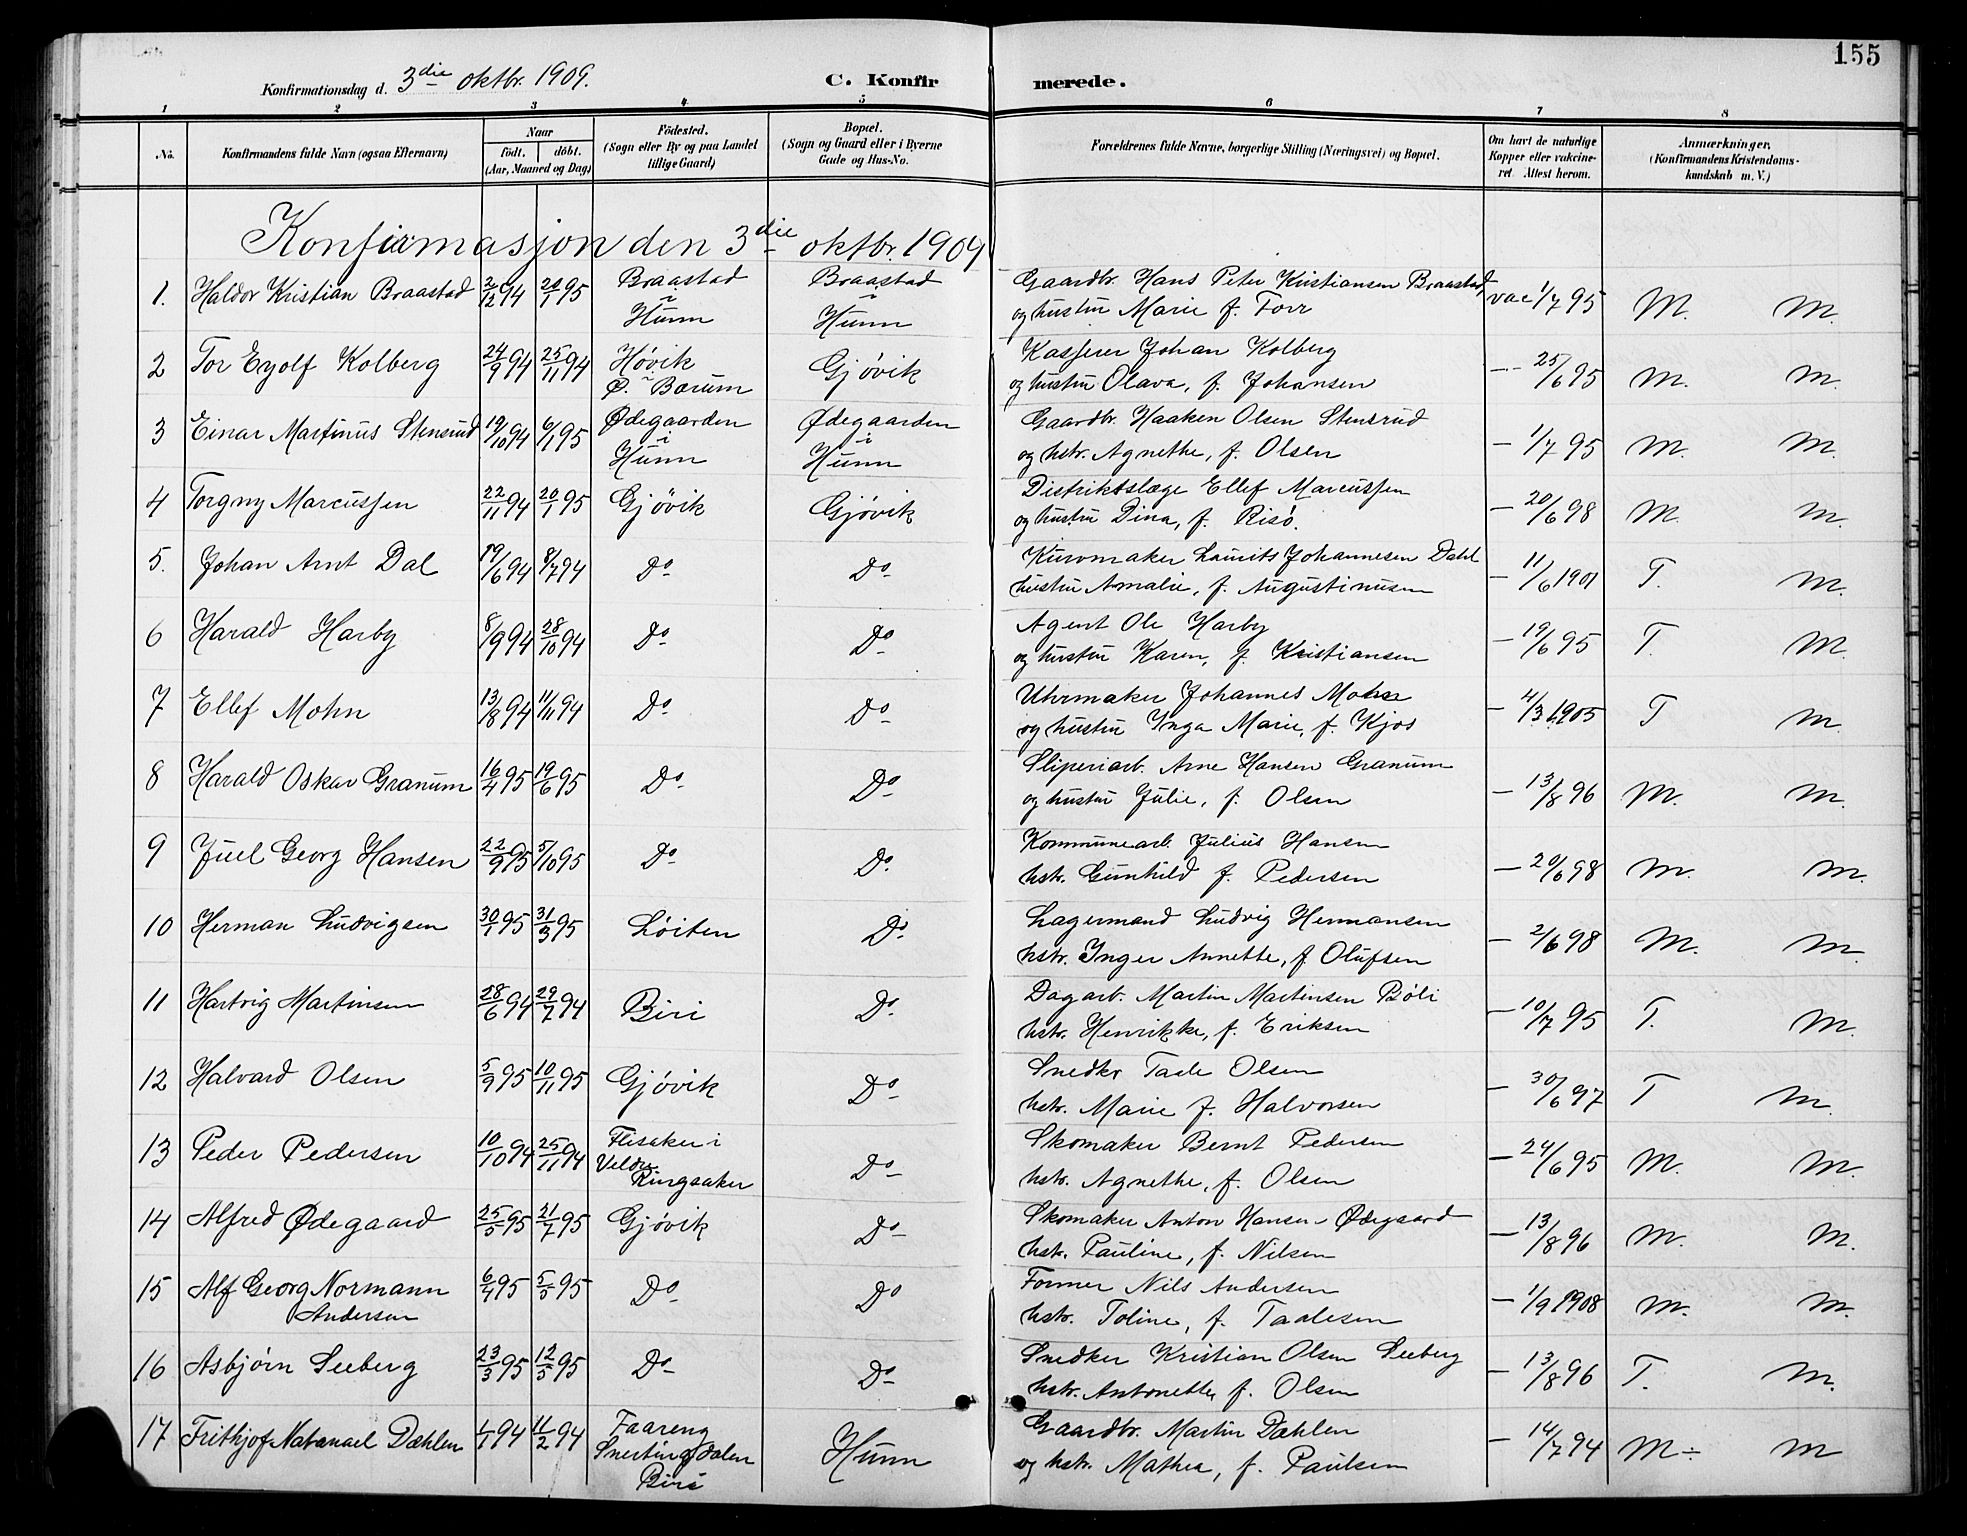 155
Konfirmationsdag d. 3die oktbr. 1909.
C. Konfir merede.
1 2 3 4 5 6 7 8
No.
Konfirmandens fulde Navn (ogsaa Efternavn)
Naar
født. døbt.
(Aar, Maaned og Dag)
Fødested.
(Sogn eller By og paa Landet
tillige Gaard)
Bopæl.
(Sogn og Gaard eller i Byerne
Gade og Hus-No.
Forældrenes fulde Navne, borgerlige Stilling (Næringsvei) og Bopæl.
Om havt de naturlige
Kopper eller vakcine-
ret Attest herom.
Anmærkninger.
(Konfirmandens Kristendoms-
kundskab m. V.)
Konfirmasjon den 3die oktbr. 1909
1. Haldor Kristian Braastad 2/12 94 20/1 95 Braastad Braastad Gaardbr. Hans Peter Kristiansen Braastad,
Hunn Hunn og hustru Marie f. Forr vac 1/7 95 M. M.
2 Tor Eyolf Kolberg 24/9 94 25/11 94 Høvik Gjøvik Kasserer Johan Kolberg
Ø. Bærum og hustru Olava, f. Johansen — 25/6 95 M. M.
3 Einar Martinus Stensrud 19/10 94 6/1 95 Ødegaarden Ødegaarden Gaardbr. Haaken Olsen Stensrud
i Hunn i Hunn og hstr. Agnethe, f. Olsen — 1/7 95 M. M.
4 Torgny Marcussen 22/11 94 20/1 95 Gjøvik Gjøvik Distriktslæge Ellef Marcussen
og hustru Dina, f. Risø. — 20/6 98 M. M.
5. Johan Arnt Dal 19/6 94 8/7 94 Do Do Kurvmaker Lauritz Johannesen Dahl
hustru Amalie, f. Augustinusen — 11/6 1901 T. M.
6 Harald Harby 8/9 94 28/10 94 Do Do Agent Ole Harby
og hustru Karen, f. Kristiansen — 19/6 95 T. M.
7 Ellef Mohn 13/8 94 11/11 94 Do Do Uhrmaker Johannes Mohn
og hustru Inga Marie, f. Kjos — 4/3 1905 T M.
8 Harald Oskar Granum 16/4 95 19/6 95 Do Do Sliperiarb. Arne Hansen Granum
og hustru Julie, f. Olsen — 13/8 96 M. M.
9 Juel Georg Hansen 22/9 95 5/10 95 Do Do Kommunearb. Julius Hansen
hstr. Gunhild f. Pedersen — 20/6 98 M. M.
10 Herman Ludvigsen 30/1 95 31/3 95 Løiten Do Lagermand Ludvig Hermansen
hstr. Inger Annette, f. Olufsen — 2/6 98 M. M.
11 Hartvig Martinsen 28/6 94 29/7 94 Biri Do Dagarb. Martin Martinsen Bøli
hstr. Henrikke, f. Eriksen — 10/7 95 T. M.
12 Halvard Olsen 5/9 95 10/11 95 Gjøvik Do Snedkr Taale Olsen
hstr. Marie f. Halvorsen — 30/6 97 T M.
13 Peder Pedersen 10/10 94 25/11 94 Flisaker i Do Skomaker Bernt Pedersen
Veldre
Ringsaker hstr. Agnethe, f. Olsen — 24/6 95 M. M.
14 Alfred Ødegaard 25/5 95 21/7 95 Gjøvik Do Skomaker Anton Hansen Ødegaard
hstr. Pauline, f. Nilsen — 13/8 96 M. M.
15 Alf Georg Normann 6/4 95 5/5 95 Do Do Former Nils Andersen
Andersen hstr. Toline, f. Taalesen — 1/9 1908 M. M.
16 Asbjørn Seeberg 23/3 95 12/5 95 Do Do Snedker Kristian Olsen Seeberg
hstr. Antonette, f. Olsen — 13/8 96 T. M.
17 Frithjof Natanael Dæhlen 1/1 94 11/2 94 Faareng Hunn Gaardbr. Martin Dæhlen
Snertingdalen
Biri og hstr. Mathea, f. Paulsen — 14/7 94 M ÷ M